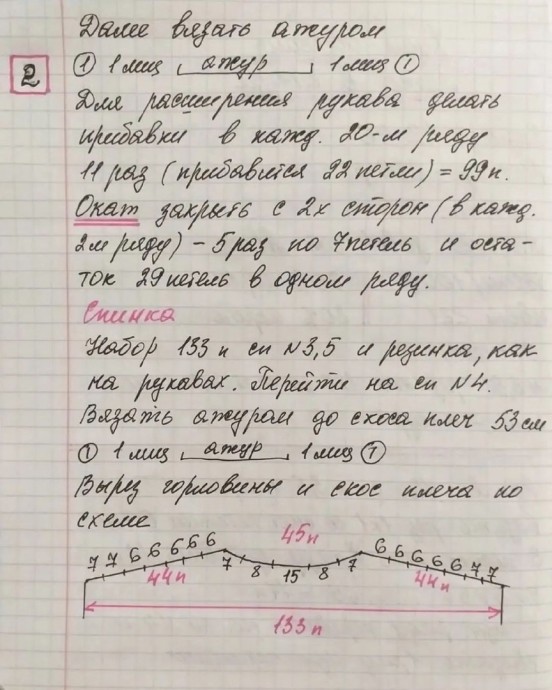 Далее вязать ажуром
2
① 1 лиц ажур 1 лиц ①
Для расширения рукава делать
прибавки в кажд. 20-м ряду
11 раз (прибавится 22 петли) = 99 п.
Окат закрыть с 2х сторон (в кажд.
2м ряду) – 5 раз по 7 петель и оста-
ток 29 петель в одном ряду.
Спинка
Набор 133 п сп N3,5 и резинка, как
на рукавах. Перейти на сп N4.
Вязать ажуром до скоса плеч 53 см
① 1 лиц ажур 1 лиц ①
Вырез горловины и скос плеча по
схеме
45 п
7 7 6 6 6 6 6 7 8 15 8 7 6 6 6 6 6 7 7
44 п 44 п
133 п